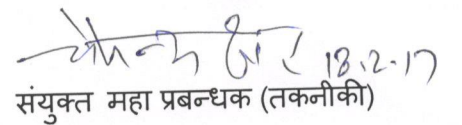 18.2.17
संयुक्त महा प्रबन्धक (तकनीकी)